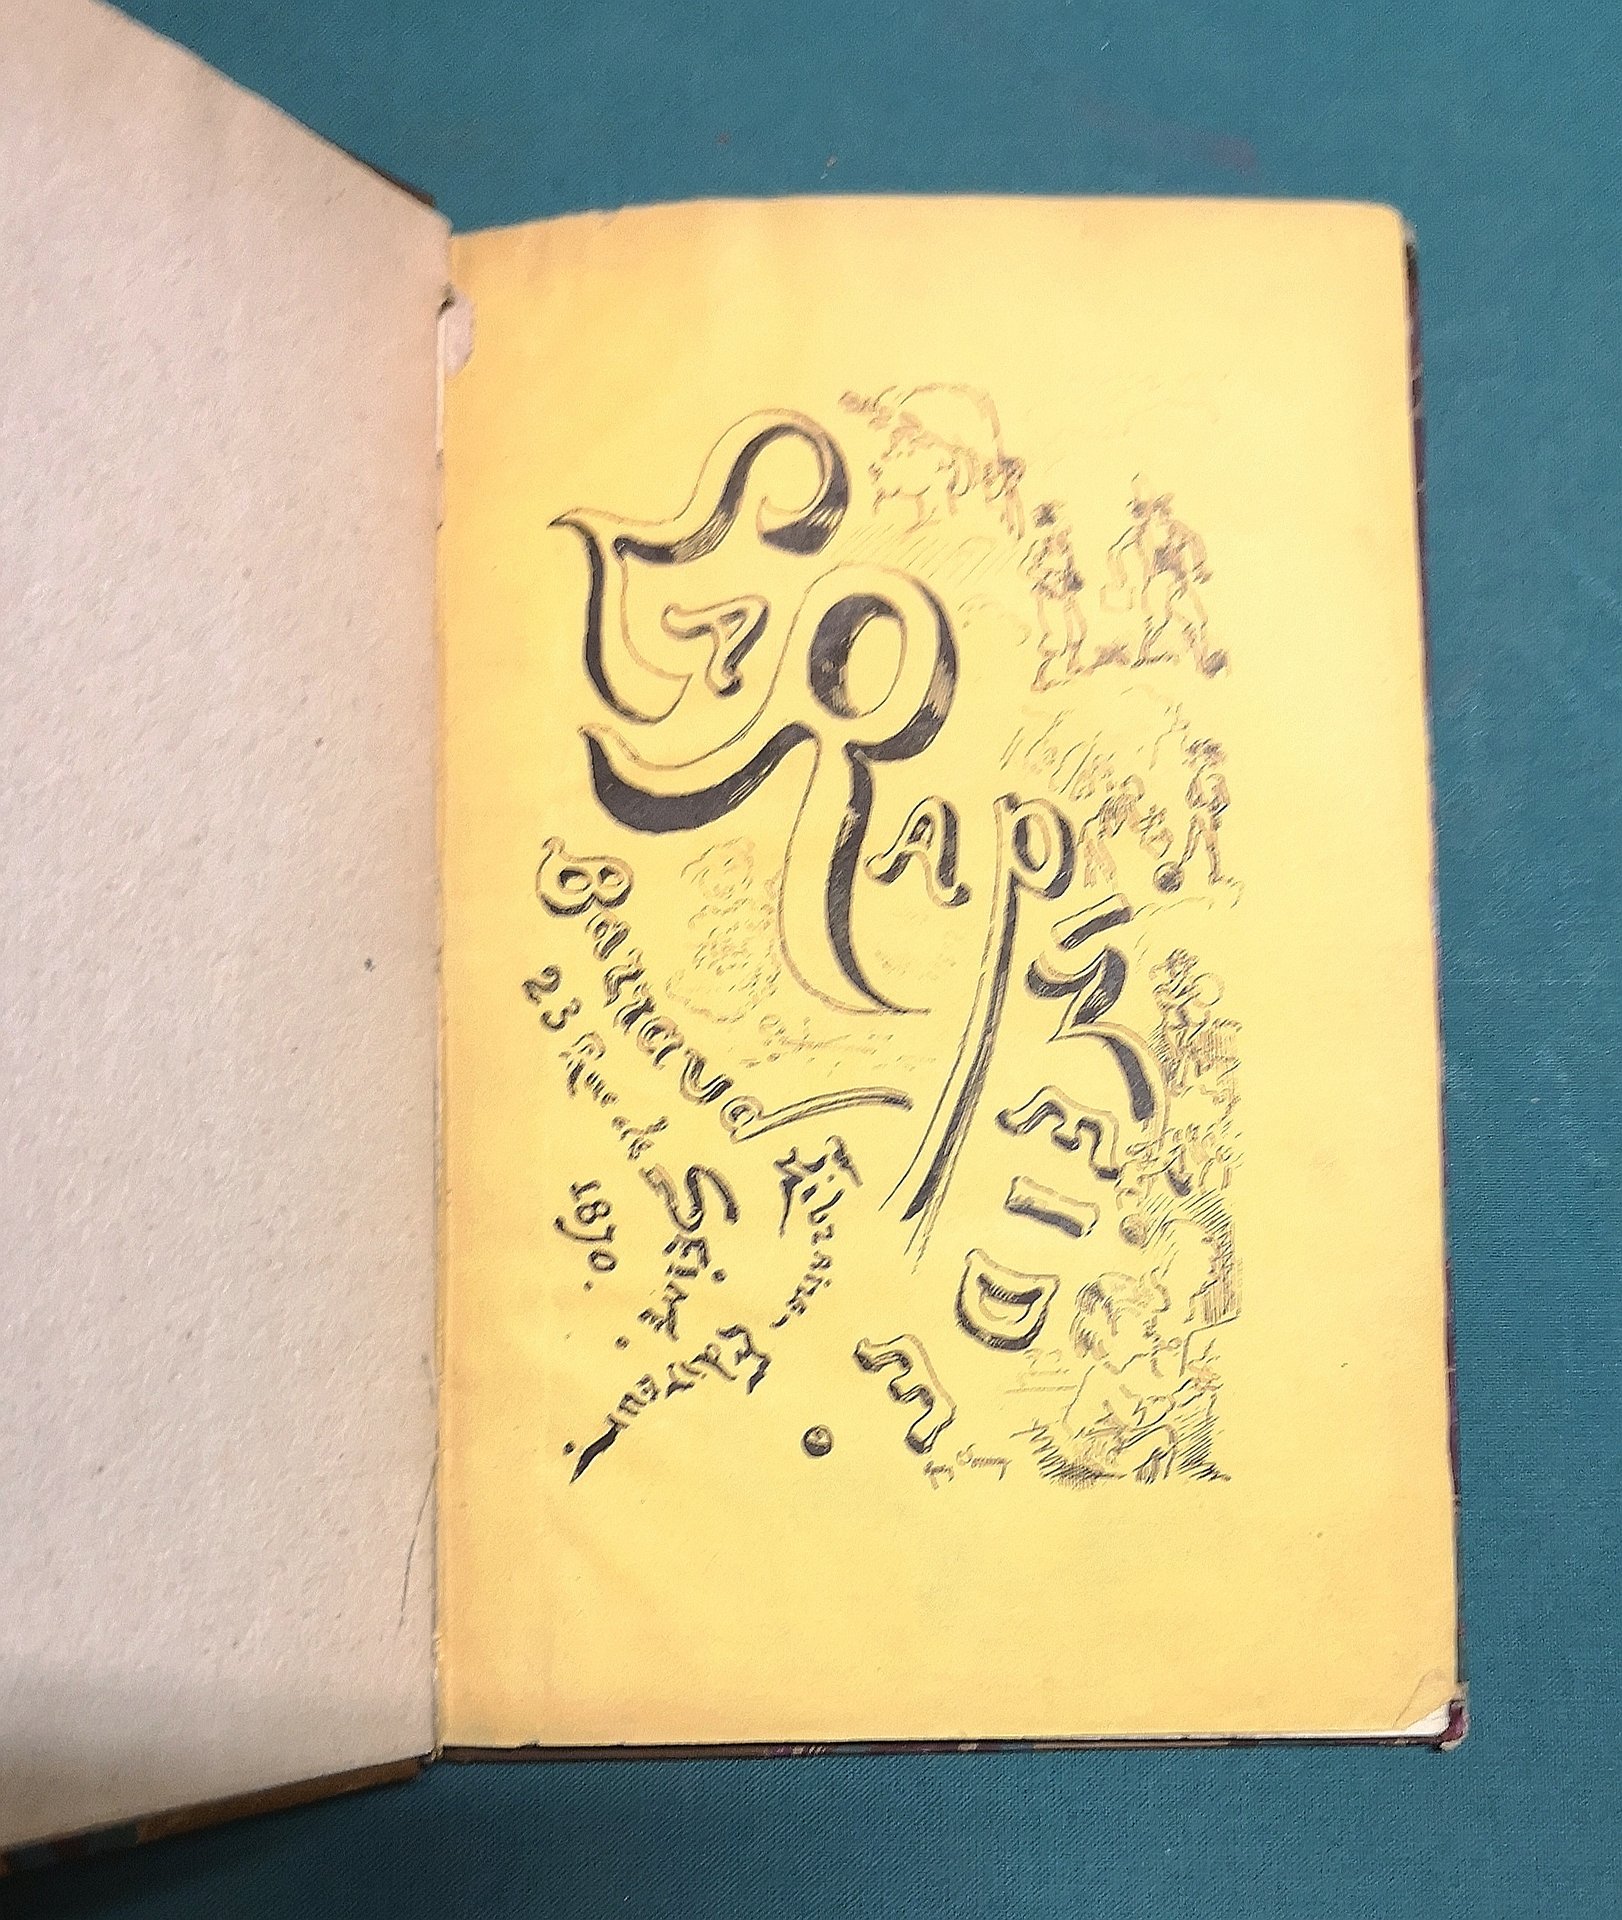 LA RAPINEIDE.
Barraud Libraire Editeur.
23 Rue de SEiNE.
1870.